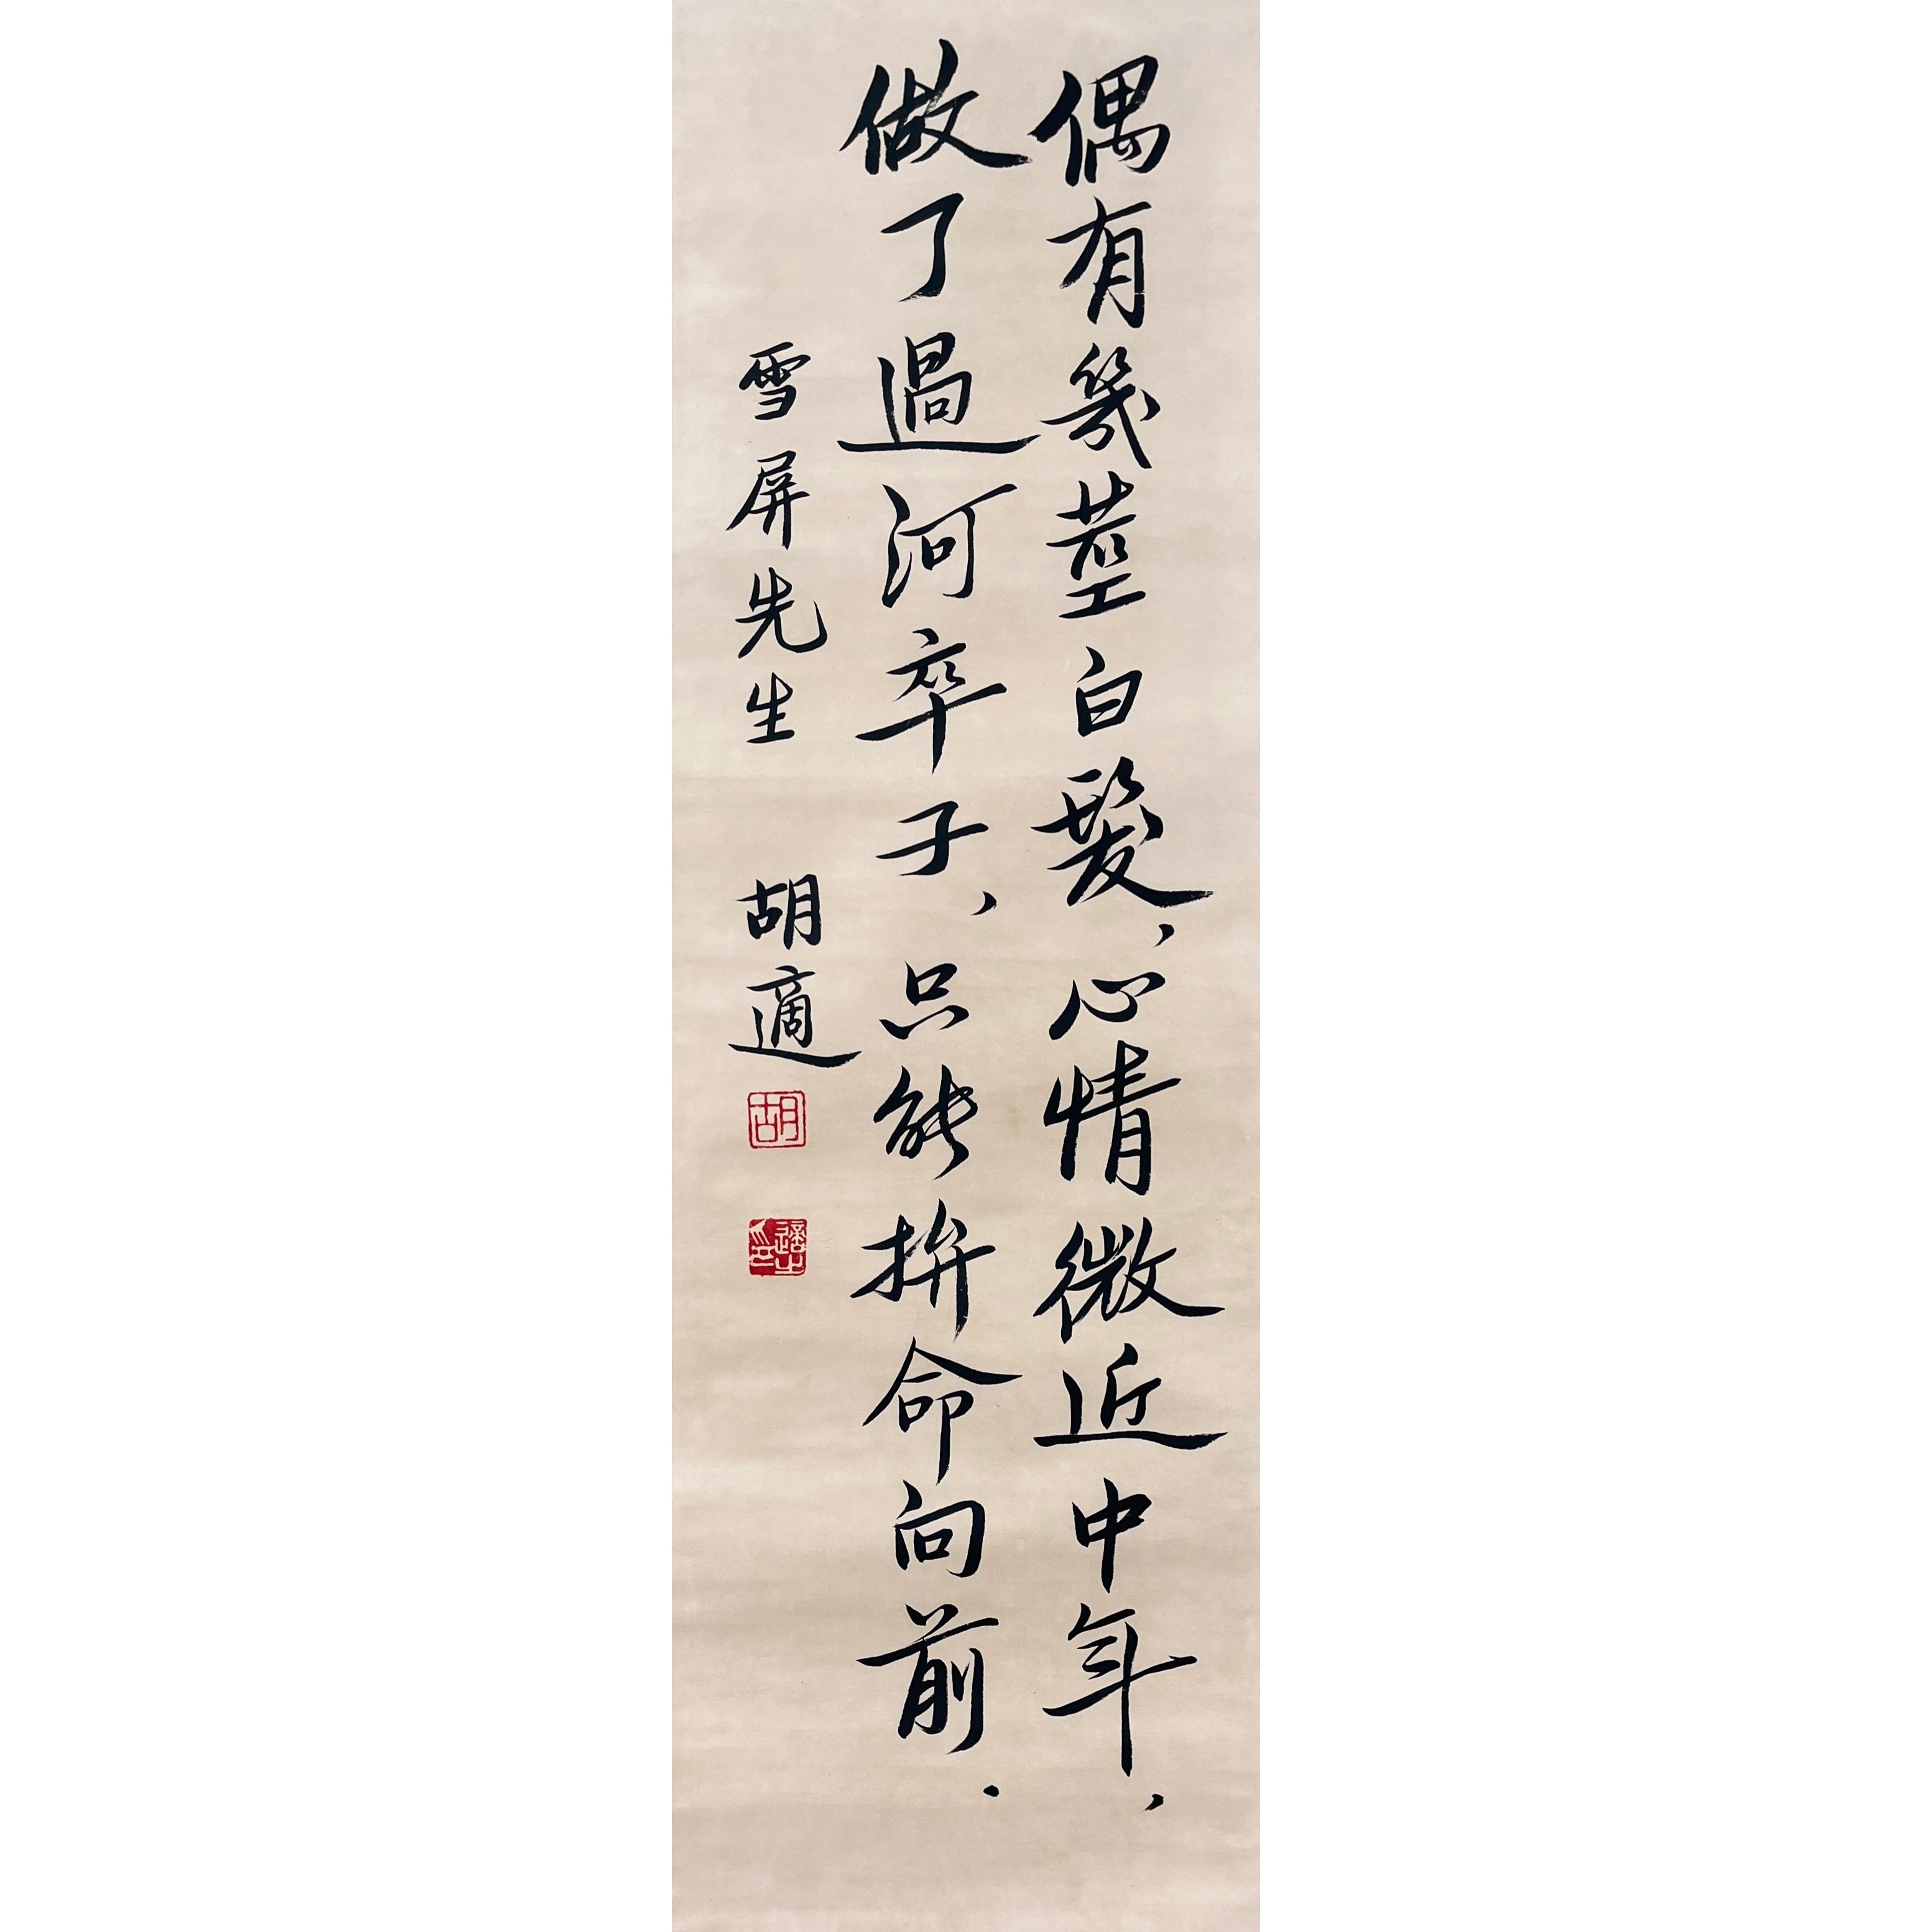 偶有幾莖白髮，心情微近中年，
做了過河卒子，只能拚命向前．
雪屏先生 胡適
胡
適之